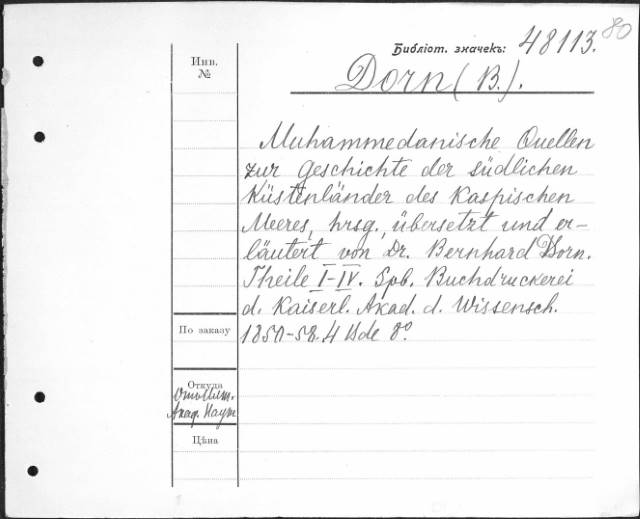 80
Библіот. значекъ: 48113.
Инв.
№
Dorn (B.).
Muhammedanische Quellen
zur Geschichte der südlichen
Küstenländer des Kaspischen
Meeres, hrsg., übersetzt und er-
läutert von Dr. Bernhard Dorn.
Theile I-IV. Spb. Buchdruckerei
d. Kaiserl. Akad. d. Wissensch.
1850-58. 4 Bde 8º.
По заказу
Откуда
Акад. Наук
Цѣна